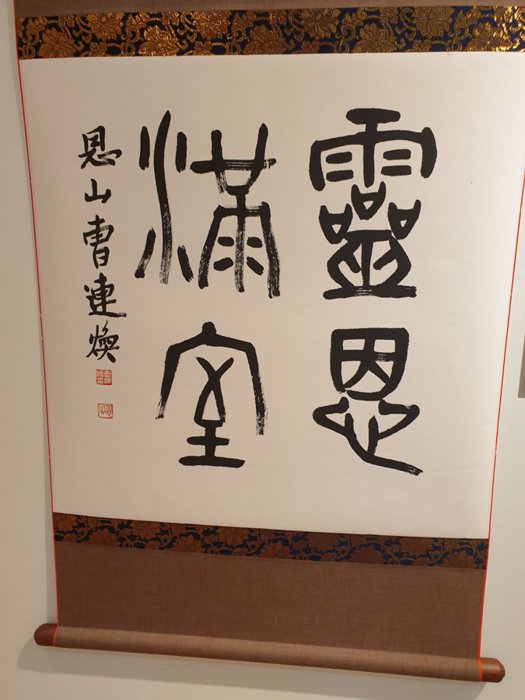 靈恩
滿室
恩山曺連煥